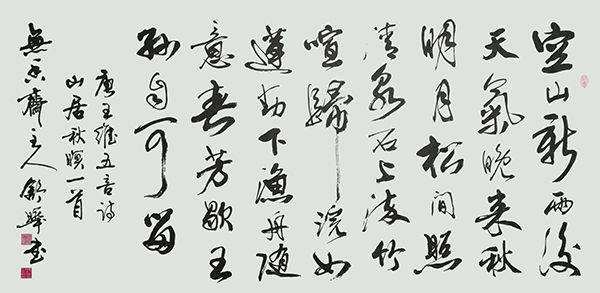 空山新雨後
天氣晚来秋
明月松間照
清泉石上流竹
喧歸浣女
蓮動下漁舟随
意春芳歇王
孫自可留
唐王維五言詩
山居秋暝一首
齋主人舒書